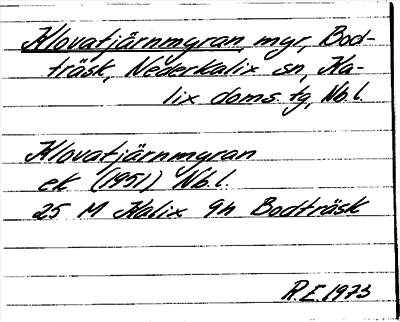 Klovatjärnmyran, myr, Bod-
träsk, Nederkalix sn, Ka-
lix doms. tg, Nb.l.
Klovatjärnmyran
ek (1951) Nb.l.
25 M Kalix 9h Bodträsk
R.E. 1973